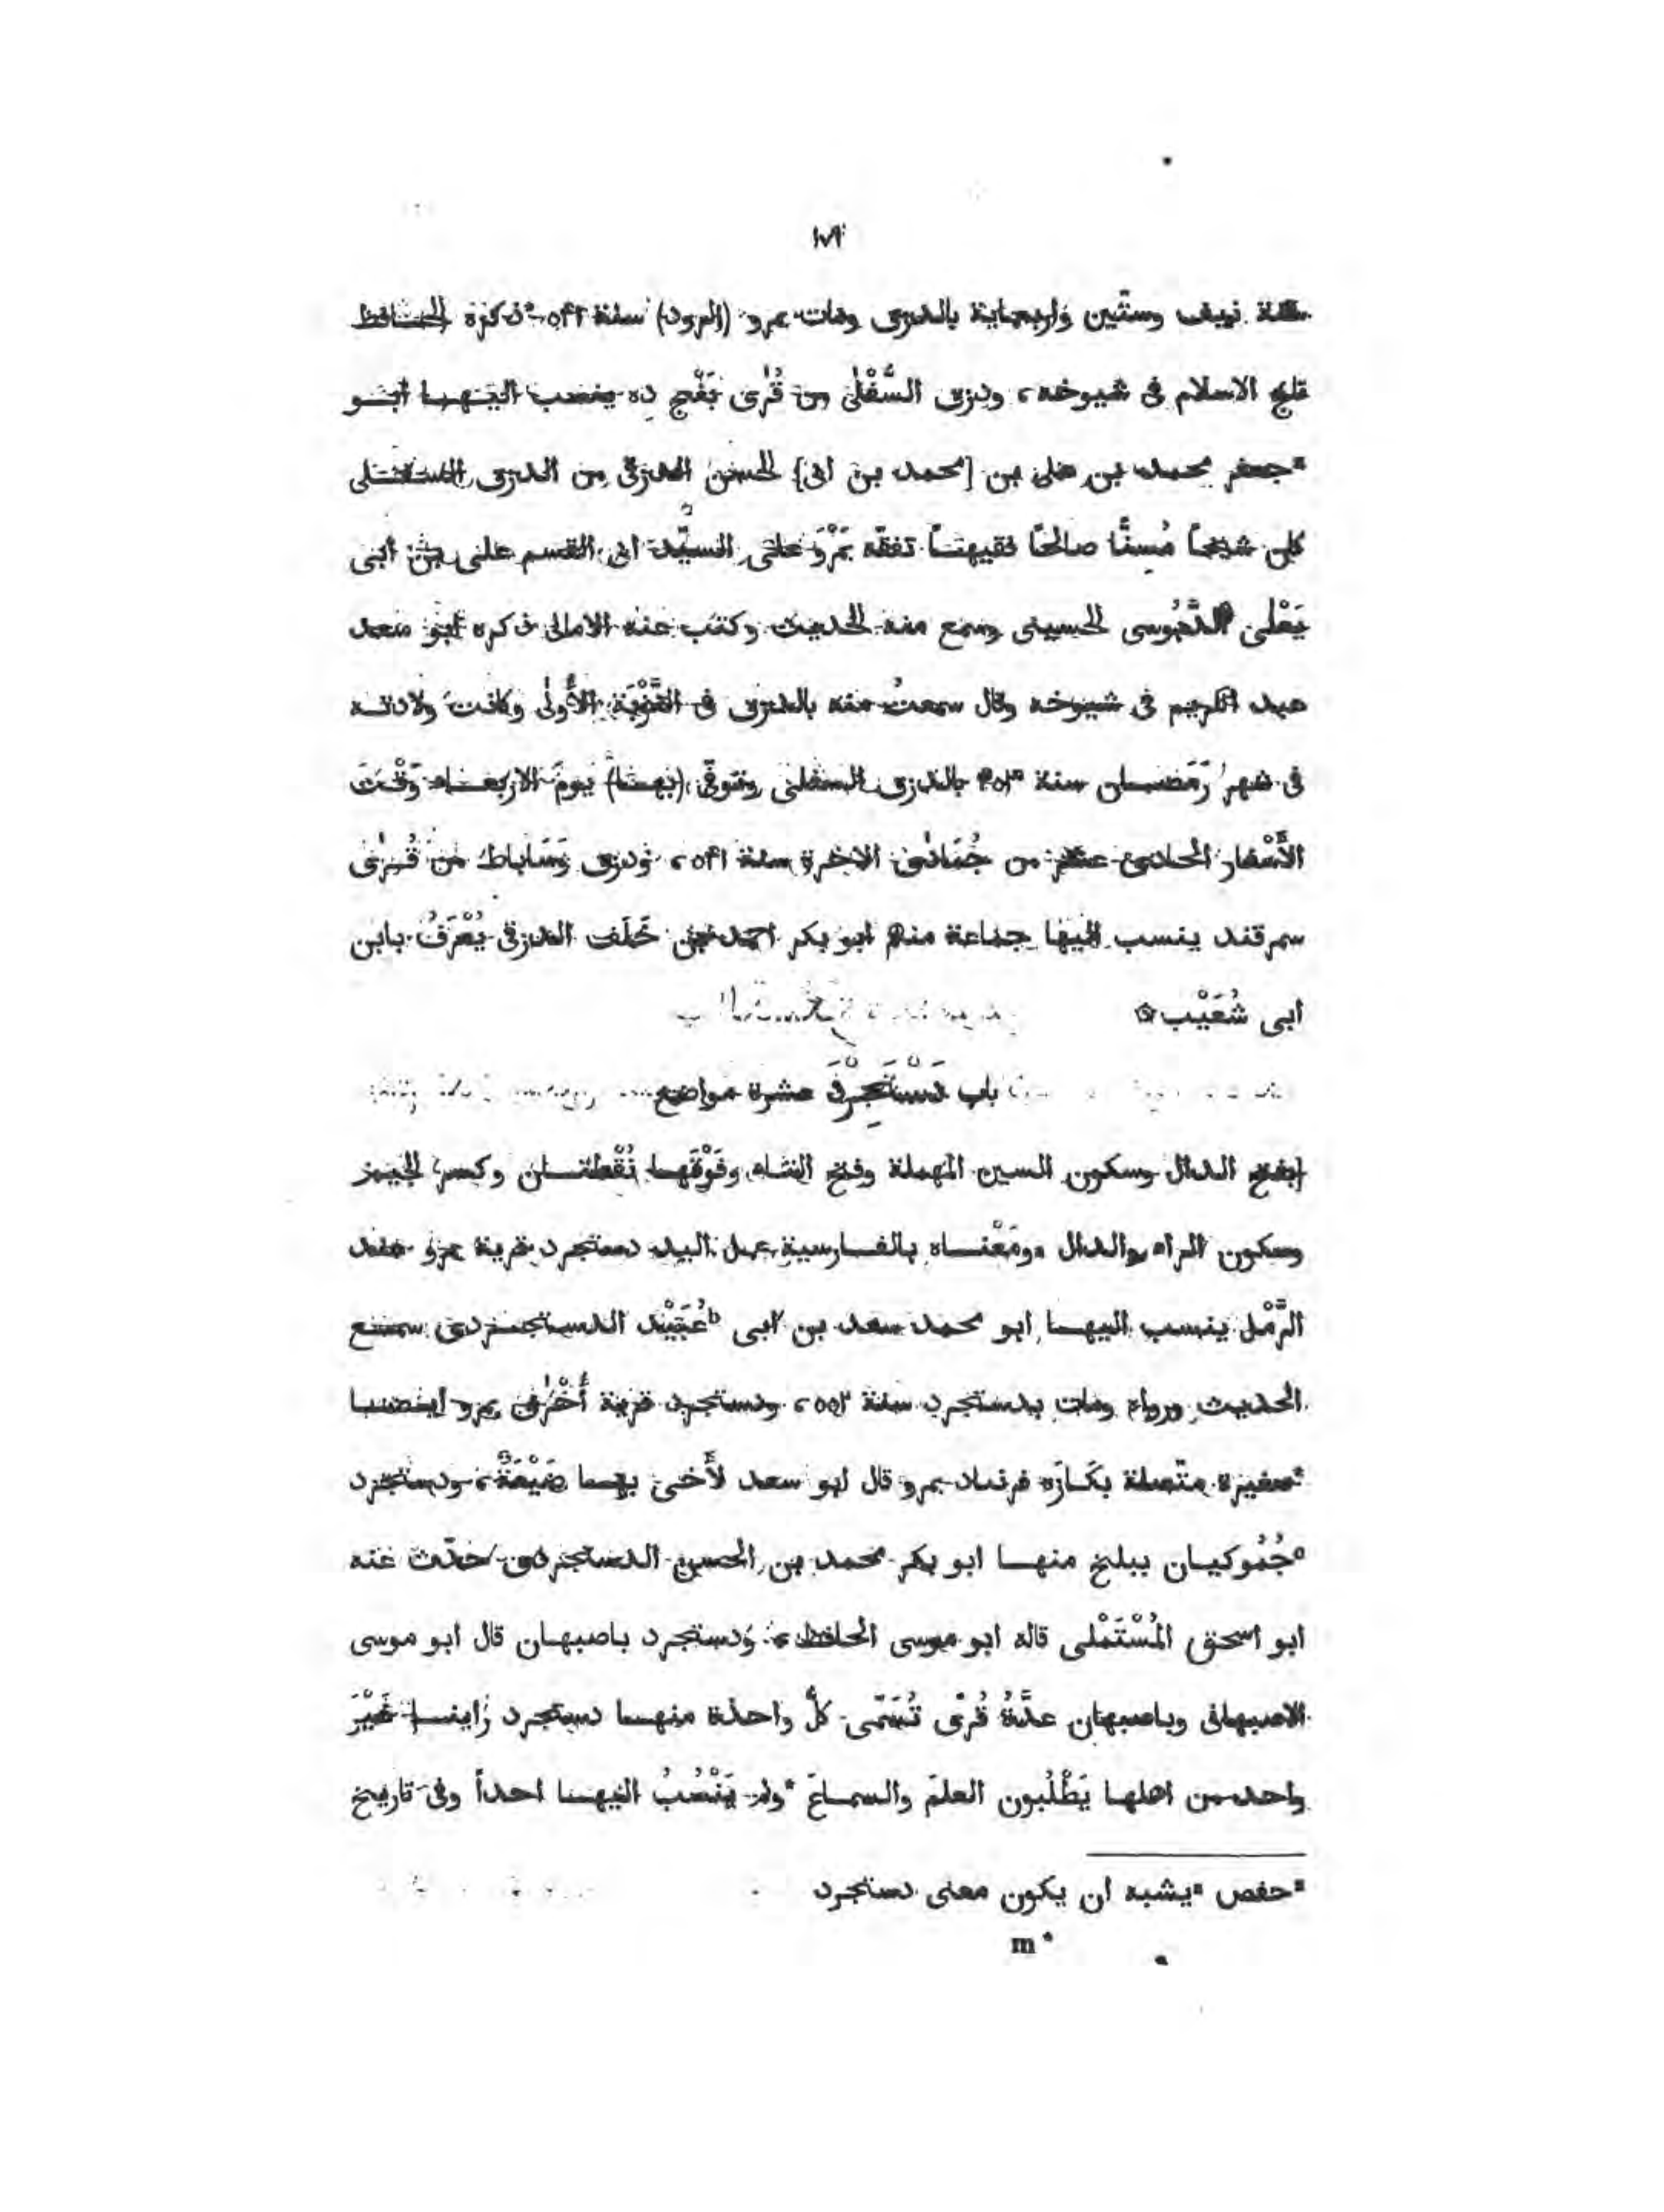 ١٧٩
سنة نيف وستّين واربعماية بالدزق ومات بمرو (الرود) سنة ٥٤١ *ذكره الحافظ
تاج الاسلام فى شيوخه، ودزق السُّفْلَى من قُرَى بَنْج ده ينسب اليها ابو
*جعفر محمد بن على بن [محمد بن ابى] الحسن الدزقى من الدزق السفلى
كان شيخاً مُسِنًّا صالحًا فقيهاً تفقّه بمَرْوَ على السيّد ابى القسم على بن أبى
يَعْلَى الدَّبُوسى الحسينى وسمع منه الحديث وكتب عنه الامالى ذكره ابو سعد
عبد الكريم فى شيوخه وقال سمعتُ منه بالدزق فى النَّوْبَة الأُولى وكانت ولادته
فى شهر رَمَضان سنة بالدزق السفلى وتوفّى (بها) يومَ الاربعاء وَقْتَ
الأَسْفار الحادى عشر من جُمَادَى الاخرة سنة ٥٤١، ودزق وَسَاباط من قُرَى
سمرقند ينسب اليها جماعة منهم ابو بكر احمد بن خَلَف الدزقى يُعْرَفُ بابن
ابى شُعَيْب۞
باب دَسْتَجِرْدَ عشرة مواضع
[بفتح الدال وسكون السين المهملة وفتح التاء وفَوْقَها نُقْطتان وكسر الجيم
وسكون الراء والدال ومَعْناه بالفارسية عمل اليد دستجرد قرية بمرو عند
الرَّمْل ينسب اليها ابو محمد سعد بن ابى bعُبَيْد الدستجردى سمع
الحديث ورواه ومات بدستجرد سنة ٥٥٢، ودستجرد قرية أُخْرَى بمرو ايضا
*صغيرة متّصلة بكَازَه فرنباد بمرو قال ابو سعد لأَخى بها ضَيْعَةٌ، ودستجرد
°جُمُوكيان ببلخ منها ابو بكر محمد بن الحسن الدستجردى حدّث عنه
ابو اسحق المُسْتَمْلى قاله ابو موسى الحافظ، ودستجرد باصبهان قال ابو موسى
الاصبهانى وباصبهان عدَّةُ قُرًى تُسَمَّى كلُّ واحدة منها دستجرد رَاينا غَيْرَ
واحد من اهلها يَطْلُبون العلمَ والسماعَ *ولم يَنْسُبُ اليها احداً وفى تاريخ
*حفص *يشبه ان يكون معنى دستجرد
m*